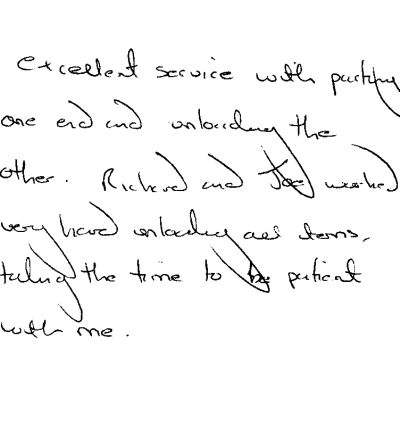 Excellent service with packing
one end and unloading the
other. Richard and Joe worked
very hard unloading all items,
taking the time to be patient
with me.